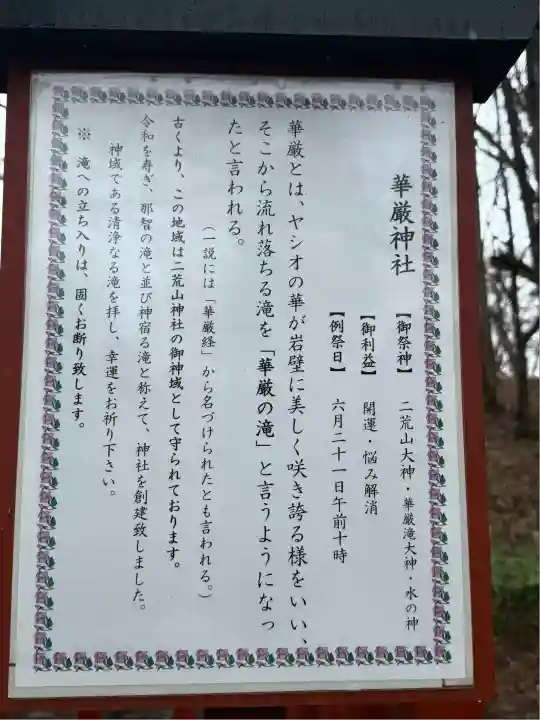 華厳神社
【御祭神】 二荒山大神・華厳滝大神・水の神
【御利益】 開運・悩み解消
【例祭日】 六月二十一日午前十時
華厳とは、ヤシオの華が岩壁に美しく咲き誇る様をいい、
そこから流れ落ちる滝を「華厳の滝」と言うようになっ
たと言われる。
（一説には「華厳経」から名づけられたとも言われる。）
古くより、この地域は二荒山神社の御神域として守られております。
令和を寿ぎ、那智の滝と並び神宿る滝と称えて、神社を創建致しました。
神域である清浄なる滝を拝し、幸運をお祈り下さい。
※ 滝への立ち入りは、固くお断り致します。